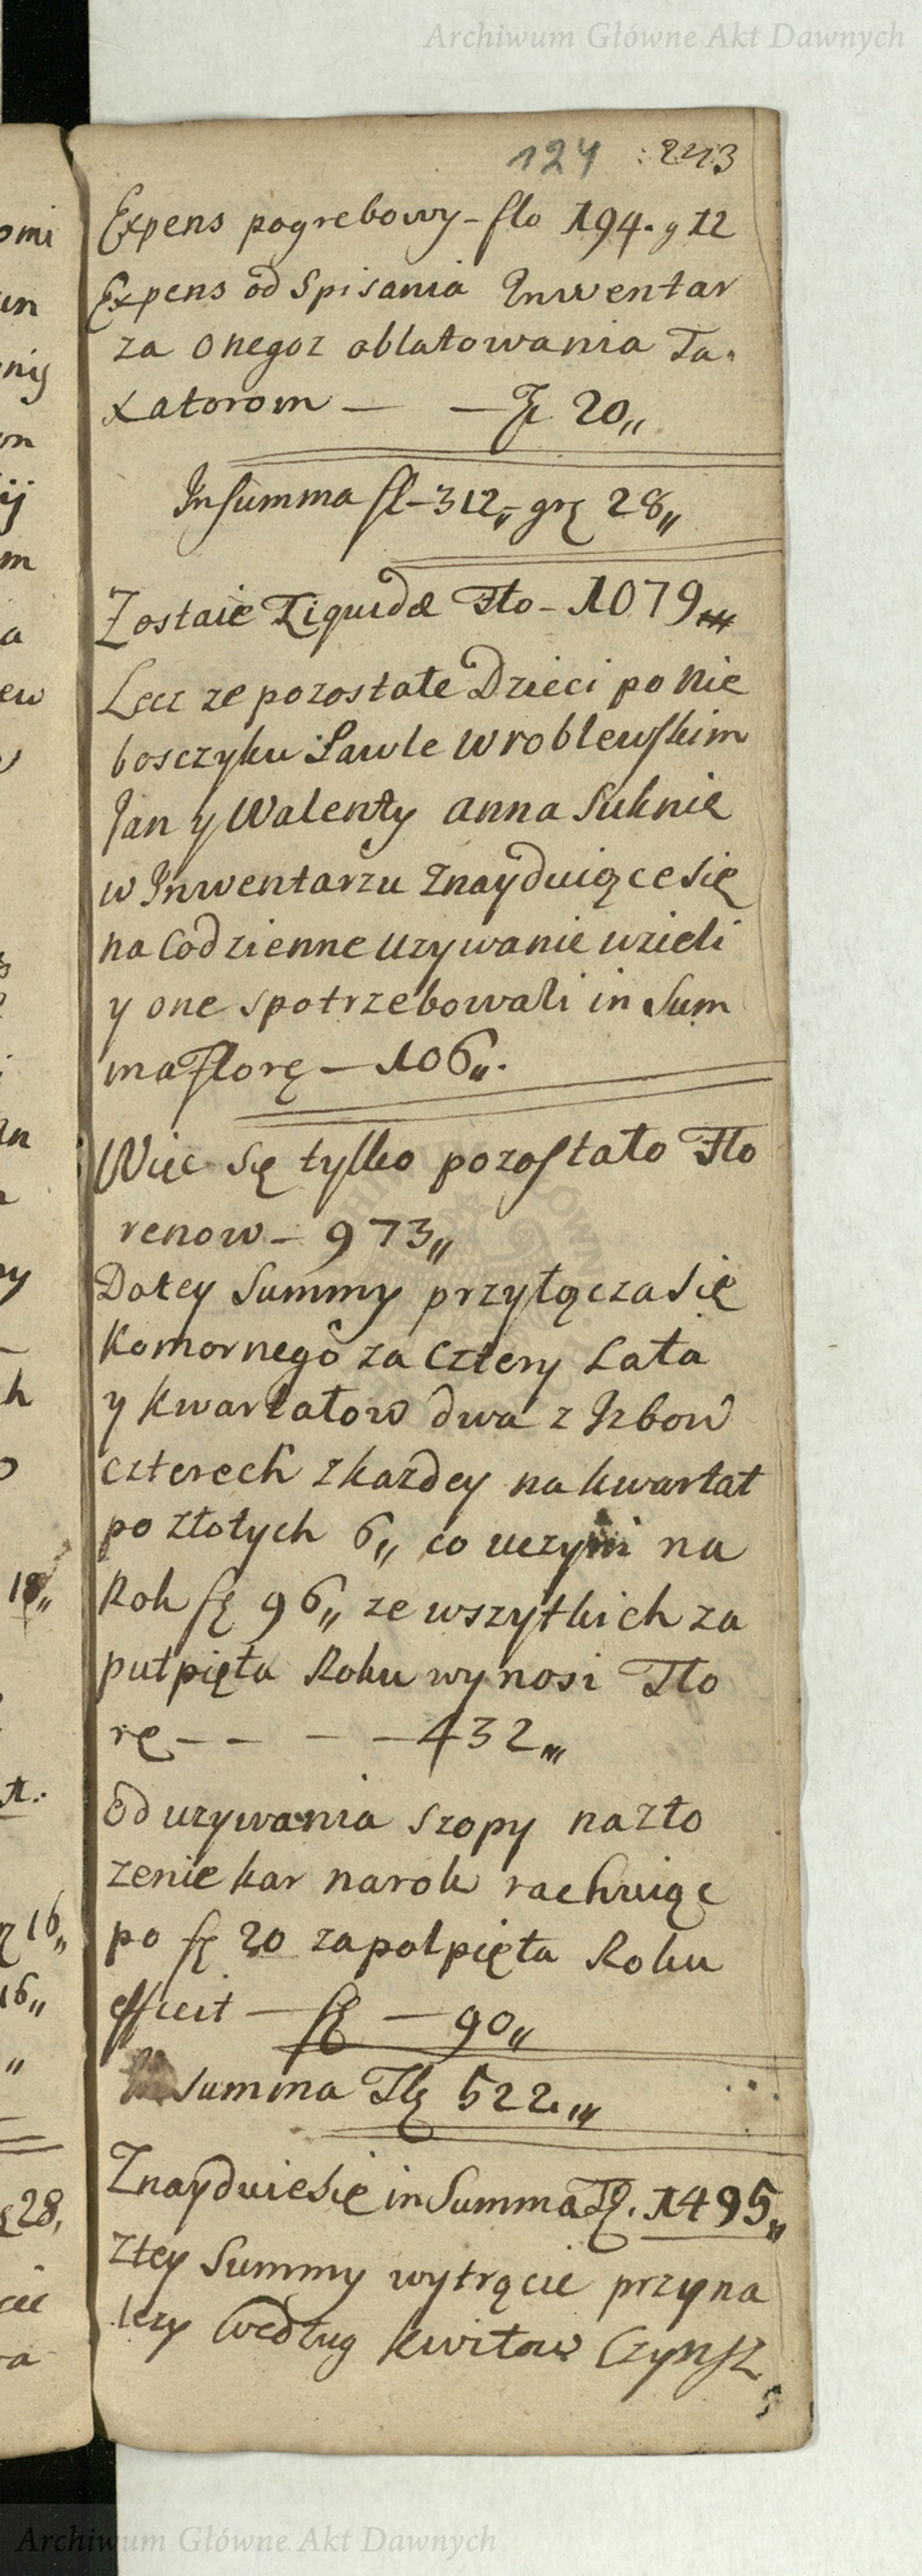 Archiwum Główne Akt Dawnych
124 243
Expens pogrebowy - flo 194. g 12
Expens od Spisania Inwentar
za onegoz oblatowania Ta.
xatorom — — Fl 20„
In summa fl - 312„ grę 28„
Zostaie Liquidæ Flo - 1079
Lecz ze pozostałe Dzieci po Nie
bosczyku Pawle Wroblewskim
Jan y Walenty Anna Suknie
w Inwentarzu Znayduiące się
na Codzienne uzywanie wzieli
y one spotrzebowali in Sum
ma Florę — 106„.
Więc się tylko pozostało Flo
renow - 973„
Do tey Summy przyłącza się
Komornego za Cztery Lata
y kwartałow dwa z Izbow
czterech z kazdey na kwartał
po złotych 6„ co uczyni na
Rok fl 96„ ze wszytkich za
puł pięta Roku wynosi Flo
rę - - - - 432„
Od uzywania Szopy na zło
zenie kar na rok rachuiąc
po fl 20 za poł pięta Roku
efficit — fl — 90„
In summa Flę 522.„
Znayduie się in Summa Fl. 1495„
Z tey Summy wytrącić przyna
lezy według kwitow Czynsz
omi
un
on
ij
m
a
ew
h
18„
16„
16„
28,
Archiwum Główne Akt Dawnych